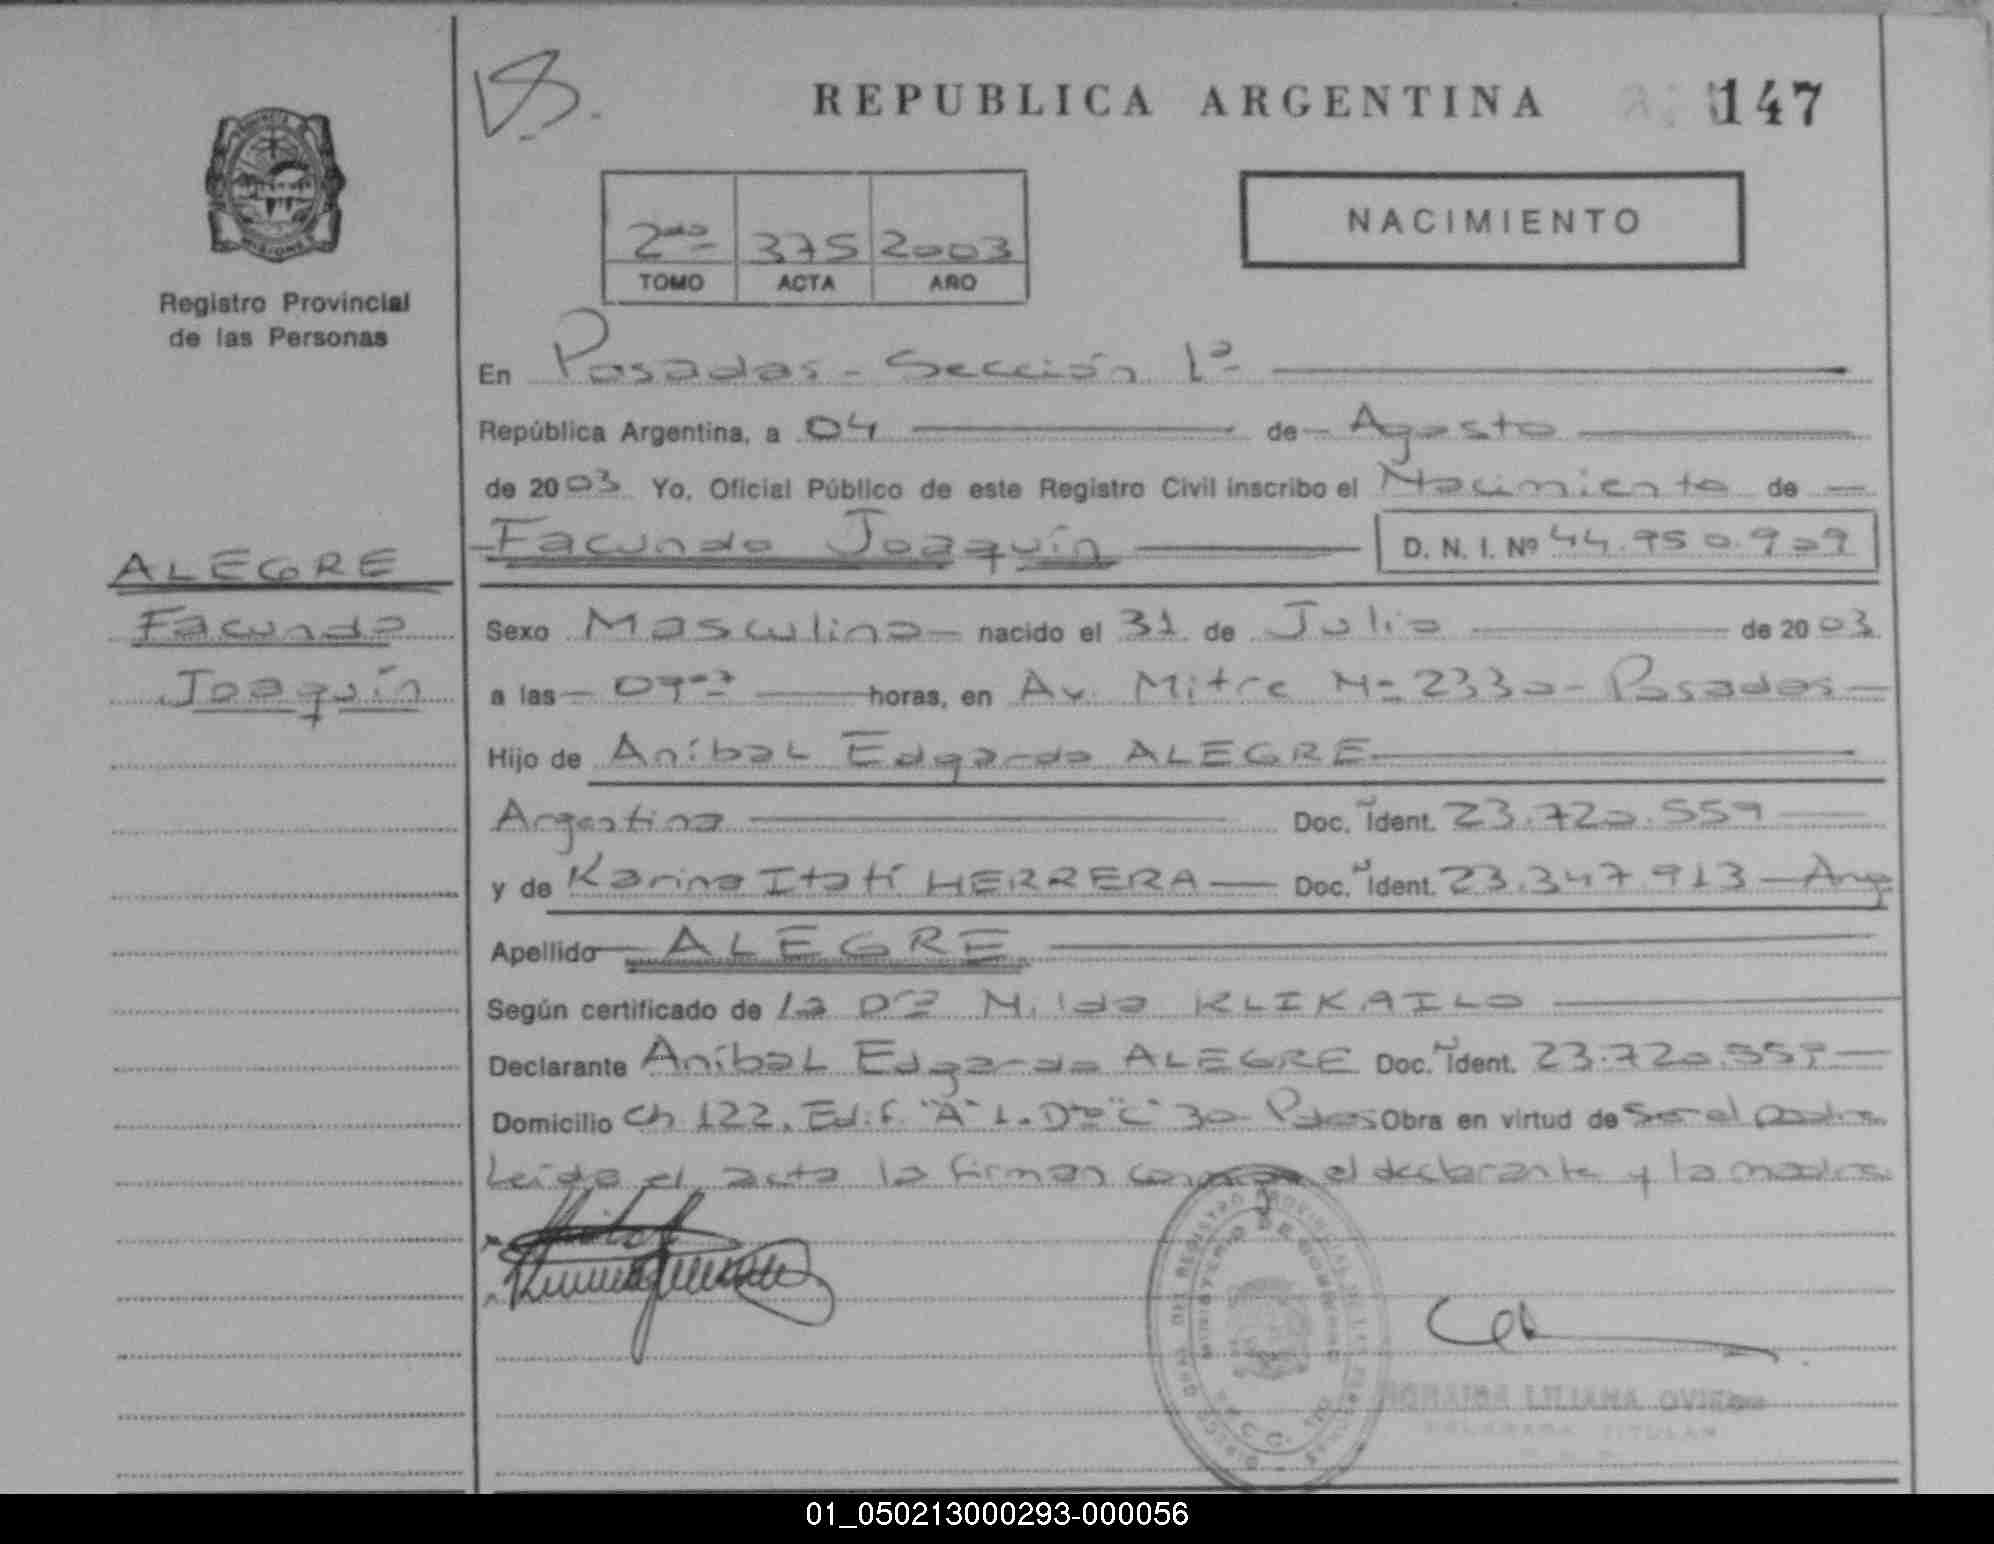 REPUBLICA ARGENTINA 147
2do 375 2003
TOMO ACTA AÑO
NACIMIENTO
Registro Provincial
de las Personas
En Posadas - Sección 1ª
República Argentina, a 04 de Agosto
de 2003 Yo, Oficial Público de este Registro Civil inscribo el Nacimiento de
Facundo Joaquín D. N. I. Nº 44.950.909
ALEGRE
Facundo
Joaquín
Sexo Masculino nacido el 31 de Julio de 2003
a las horas, en Av. Mitre Nº 2330 - Posadas
Hijo de Aníbal Edgardo ALEGRE
Argentina Doc. Ident. 23.720.559
y de Karina Itatí HERRERA Doc. Ident. 23.347.913 - Arg
Apellido ALEGRE
Según certificado de la Dra Nilda KLIKAILO
Declarante Aníbal Edgardo ALEGRE Doc. Ident. 23.720.559
Domicilio Ch 122, Edif. "A" 1. Dto "C" 30 Pdas Obra en virtud de ser el padre
Leída el acta la firman el declarante y la madre
LILIANA
TITULAR
01_050213000293-000056